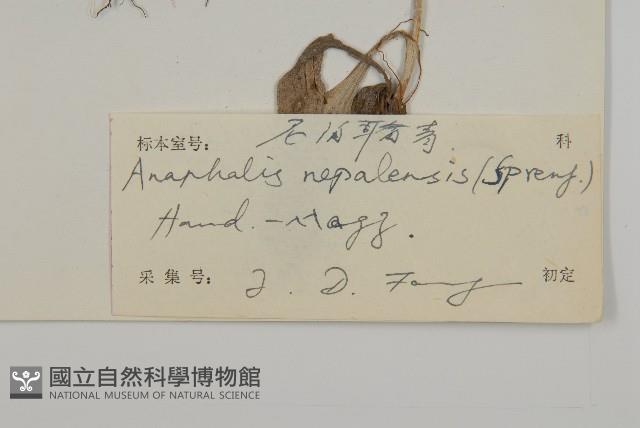 标本室号: 尼泊尔香青 科
Anaphalis nepalensis (Spreng.)
Hand.-Mazz.
采集号: D. Fang 初定
國立自然科學博物館
NATIONAL MUSEUM OF NATURAL SCIENCE